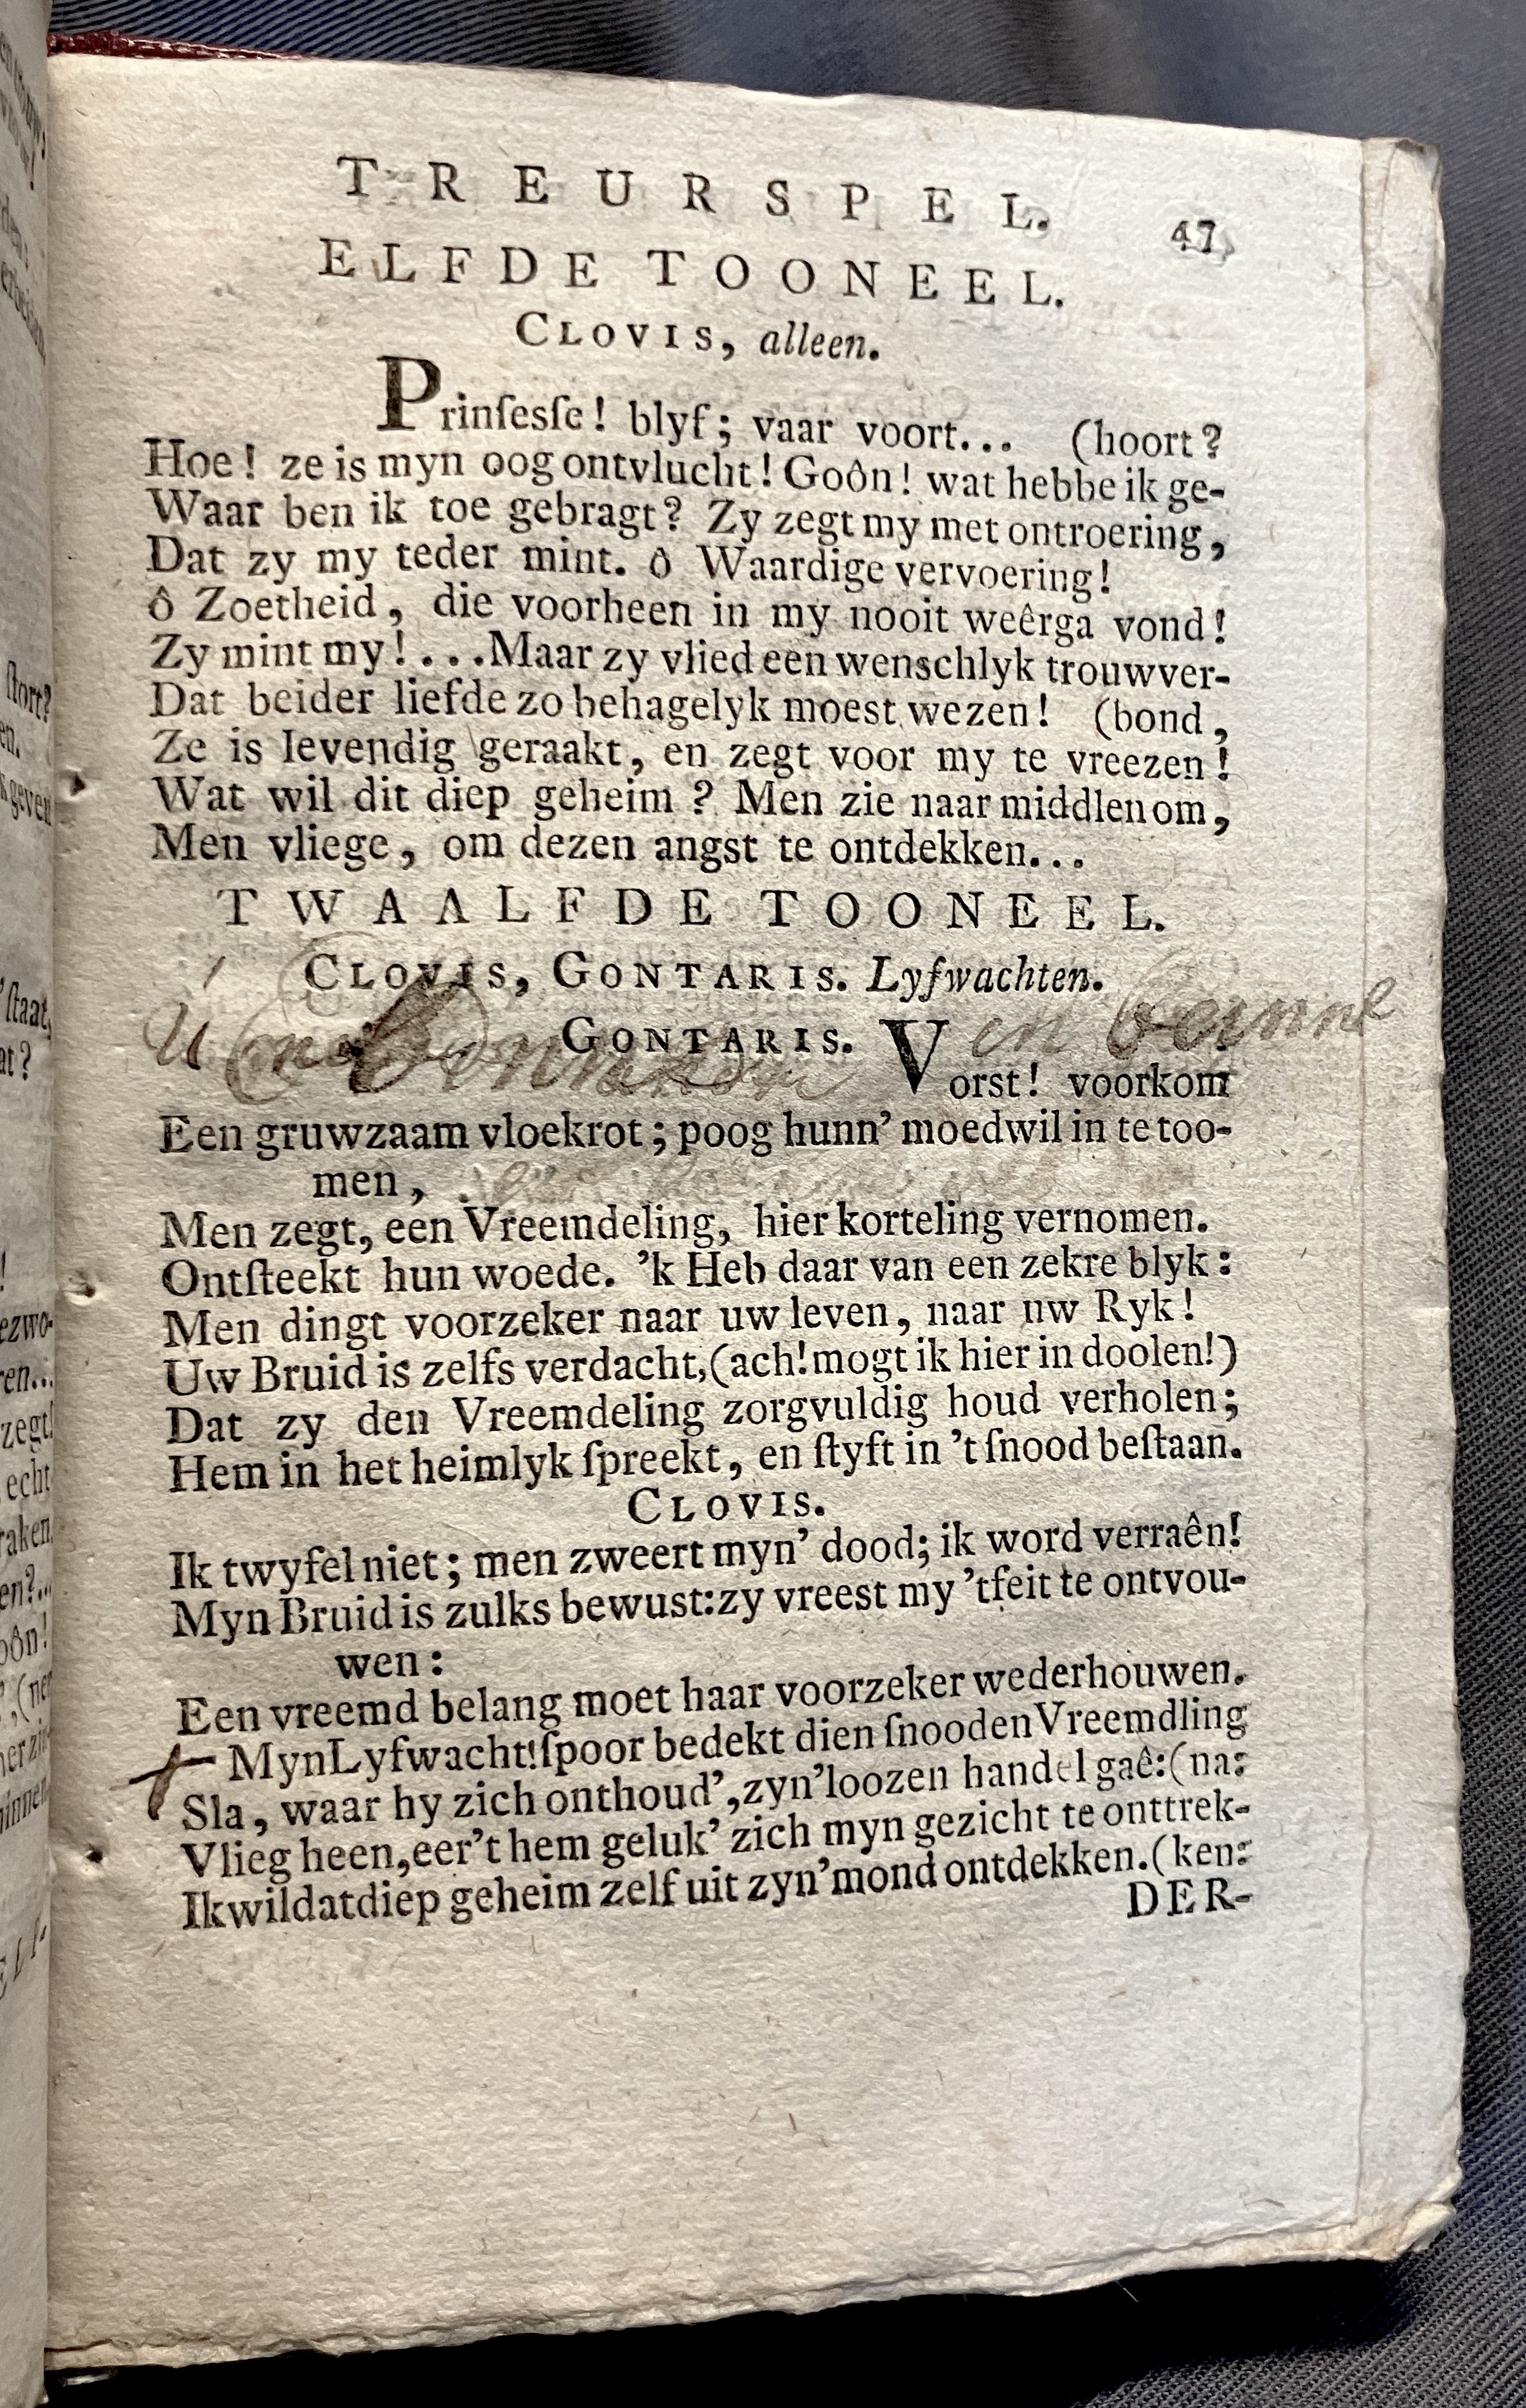 TREURSPEL. 47
ELFDE TOONEEL.
CLOVIS, alleen.
Prinſesſe! blyf; vaar voort... (hoort?
Hoe! ze is myn oog ontvlucht! Goôn! wat hebbe ik ge-
Waar ben ik toe gebragt? Zy zegt my met ontroering,
Dat zy my teder mint. ô Waardige vervoering!
ô Zoetheid, die voorheen in my nooit weêrga vond!
Zy mint my!...Maar zy vlied een wenschlyk trouwver-
Dat beider liefde zo behagelyk moest wezen! (bond,
Ze is levendig geraakt, en zegt voor my te vreezen!
Wat wil dit diep geheim? Men zie naar middlen om,
Men vliege, om dezen angst te ontdekken...
TWAALFDE TOONEEL.
CLOVIS, GONTARIS. Lyfwachten.
GONTARIS.
Vorst! voorkom
Een gruwzaam vloekrot; poog hunn' moedwil in te too-
men,
Men zegt, een Vreemdeling, hier korteling vernomen.
Ontſteekt hun woede. 'k Heb daar van een zekre blyk:
Men dingt voorzeker naar uw leven, naar uw Ryk!
Uw Bruid is zelfs verdacht, (ach! mogt ik hier in doolen!)
Dat zy den Vreemdeling zorgvuldig houd verholen;
Hem in het heimlyk ſpreekt, en ſtyft in 't ſnood beſtaan.
CLOVIS.
Ik twyfel niet; men zweert myn' dood; ik word verraên!
Myn Bruid is zulks bewust: zy vreest my 't feit te ontvou-
wen:
Een vreemd belang moet haar voorzeker wederhouwen.
Myn Lyfwacht! ſpoor bedekt dien ſnooden Vreemdling
Sla, waar hy zich onthoud', zyn' loozen handel gaê: (na:
Vlieg heen, eer't hem geluk' zich myn gezicht te onttrek-
Ik wil dat diep geheim zelf uit zyn' mond ontdekken. (ken:
DER-